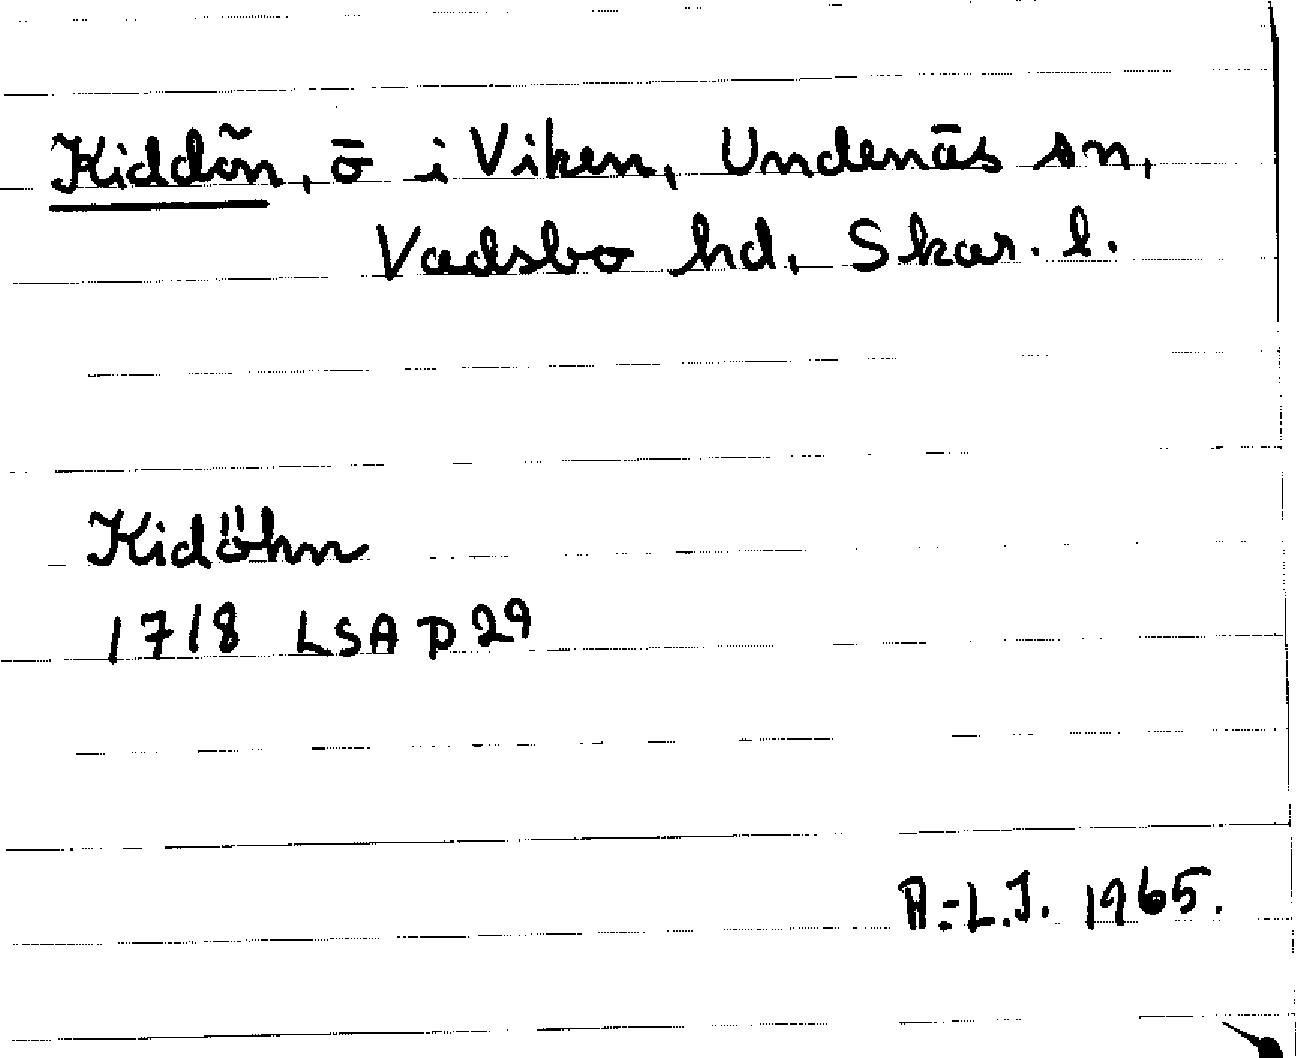 Kiddön, ö i Viken, Undenäs sn,
Vadsbo hd, Skar. l.
Kidöhn
1718 LSA P29
A.-L.J. 1965.